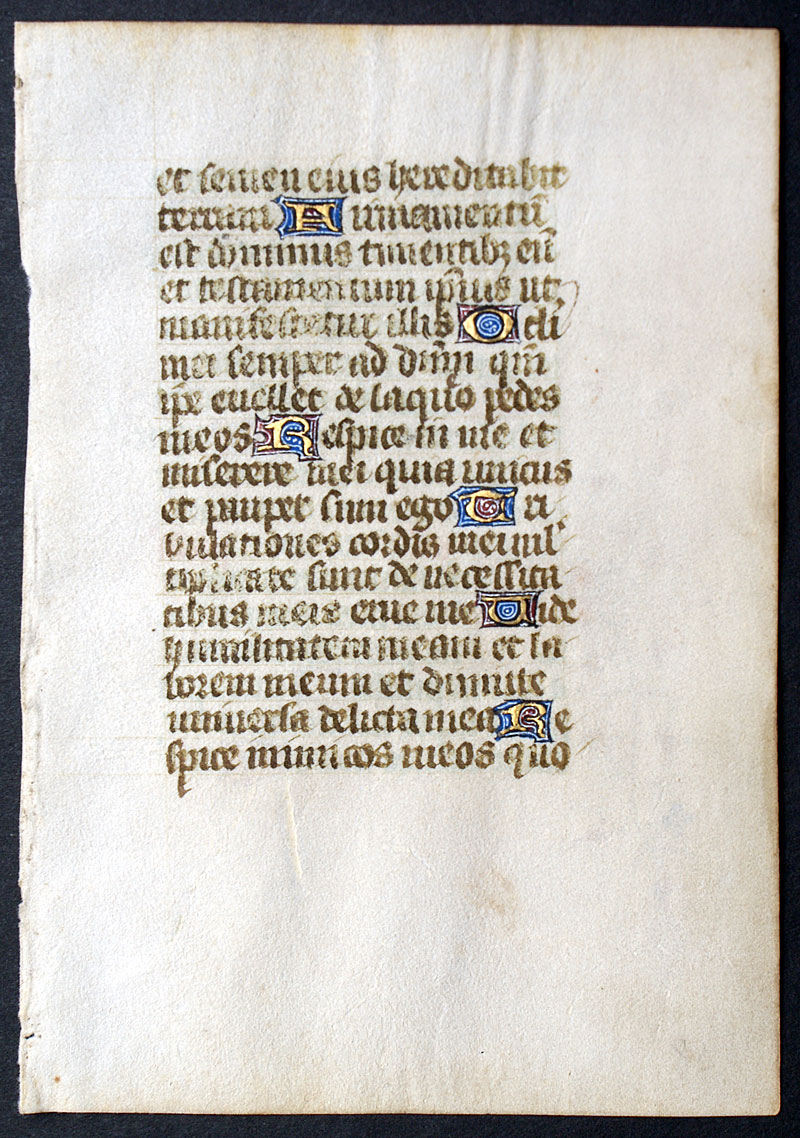 et semen eius hereditabit
terram Firmamentū
est dominus timentibꝫ eū
et testamentum ip̄ius ut
manifestetur illis Oculi
mei semper ad dn̄m qm̄
ip̄e euellet de laqueo pedes
meos Respice in me et
miserere mei quia unicus
et pauper sum ego Tri
bulationes cordis mei mul
tiplicate sunt de necessita
tibus meis erue me Uide
humilitatem meam et la
borem meum et dimitte
uniuersa delicta mea Re
spice inimicos meos quo